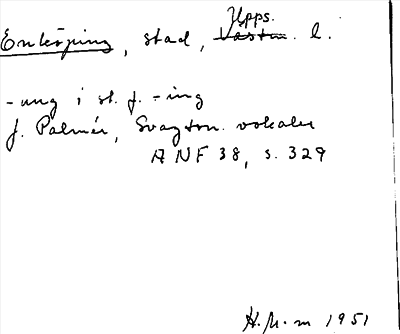 Upps.
Enköping, stad, Västm. l.
-ung i st. f. -ing
J. Palmér, Svagton. vokaler
ANF 38, s. 329
H. M-m 1951